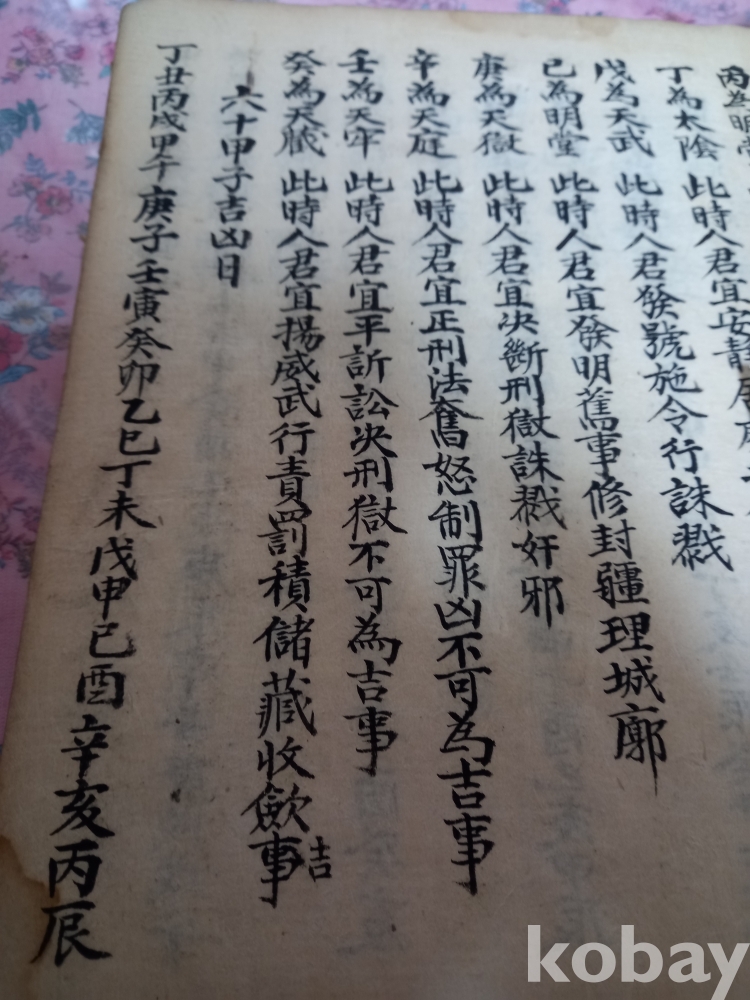 丙為明堂
丁為太陰 此時人君宜安靜居
戊為天武 此時人君發號施令行誅戮
已為明堂 此時人君宜發明舊事修封疆理城廓
庚為天獄 此時人君宜决斷刑獄誅戮奸邪
辛為天庭 此時人君宜正刑法奮怒制罪凶不可為吉事
壬為天牢 此時人君宜平訴訟决刑獄不可為吉事
癸為天藏 此時人君宜揚威武行責罰積儲藏收歛事吉
六十甲子吉凶日
丁丑丙戌甲午庚子壬寅癸卯乙巳丁未戊申已酉辛亥丙辰
kobay